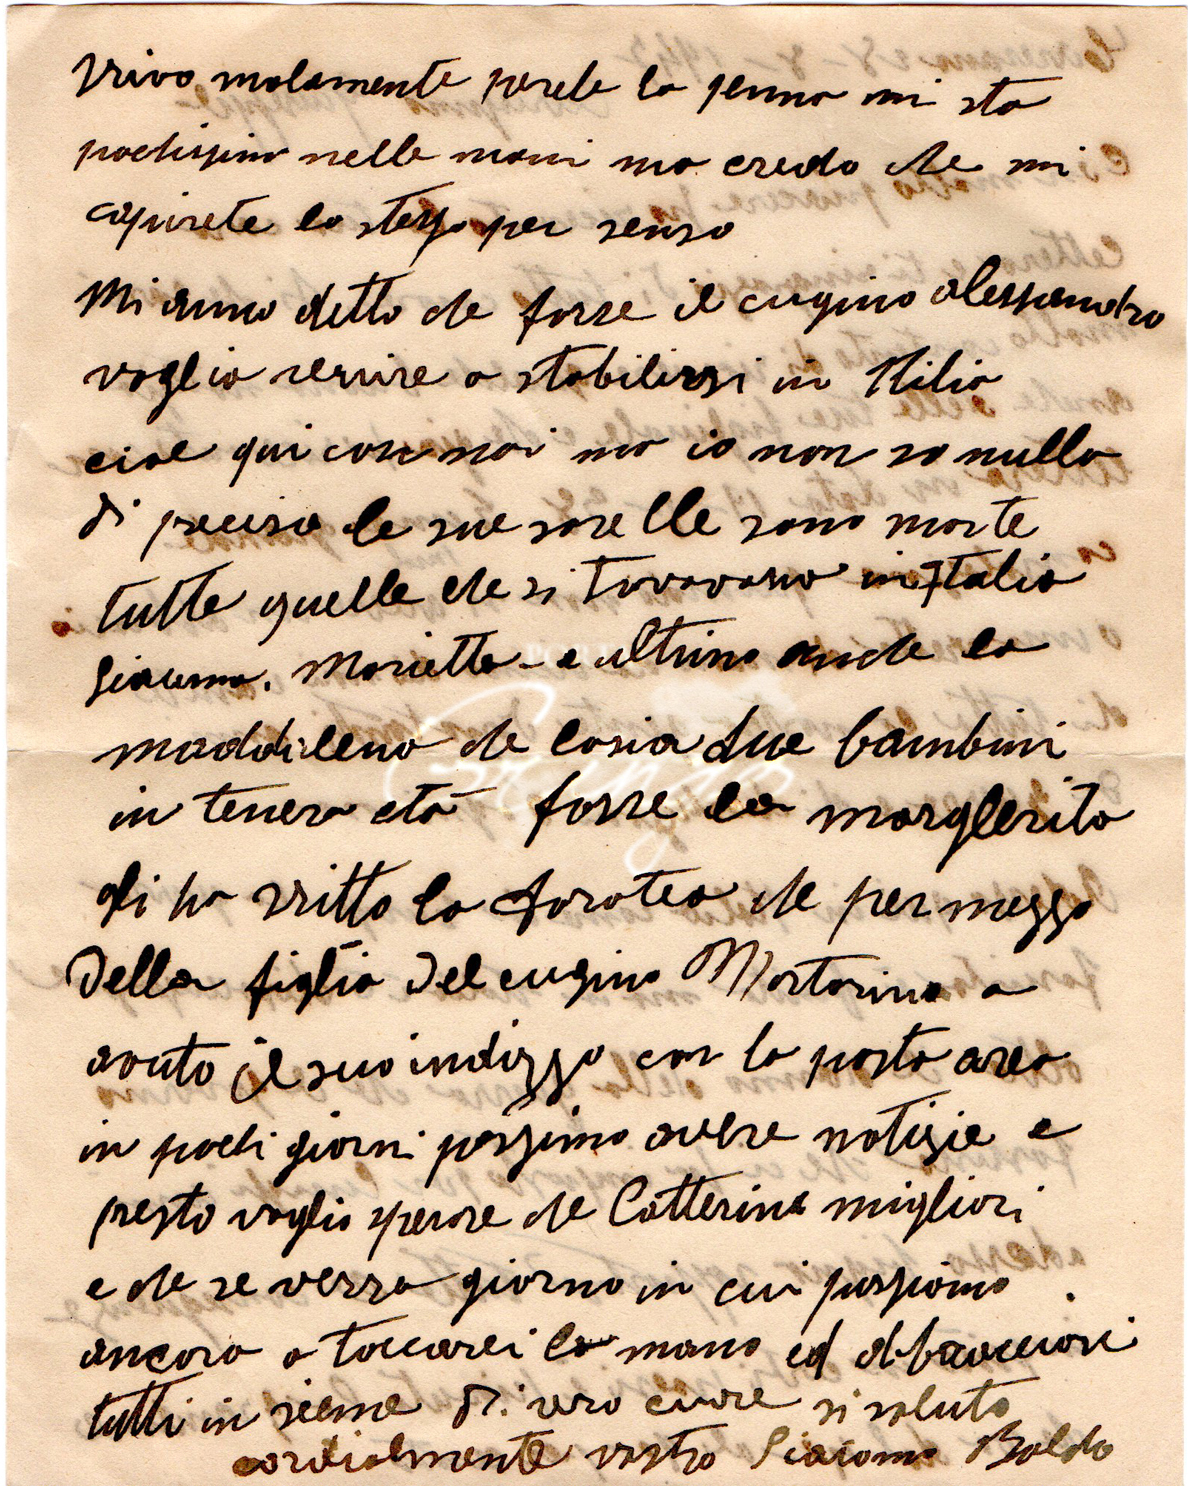 Vrivo malamente perche la penna mi sta
pochissimo nelle mani ma credo che mi
capirete lo stesso per senso
Mi anno detto che forse il cugino alessandro
voglia venire a stabilirsi in Itilia
cioe qui con noi ma io non so nulla
di preciso le sue sorelle sono morte
tutte quelle che si trovavano in Italia
Giacoma. Marietta - e ultima anche la
maddalena che lasia due bambini
in tenera età forse la margherita
gli ha vritto la dorotea che per mezzo
Della figlia Del cugino Martorino a
avuto il suo indizzo con la posta area
in pochi giorni possimo avere notizie e
presto voglio sperare che Catterina migliori
e che se verra giorno in cui possiamo
ancora a toccarci la mano ed abbracciarci
tutti in sieme di vero cuore si saluta
cordialmente vostro Giacomo Baldo